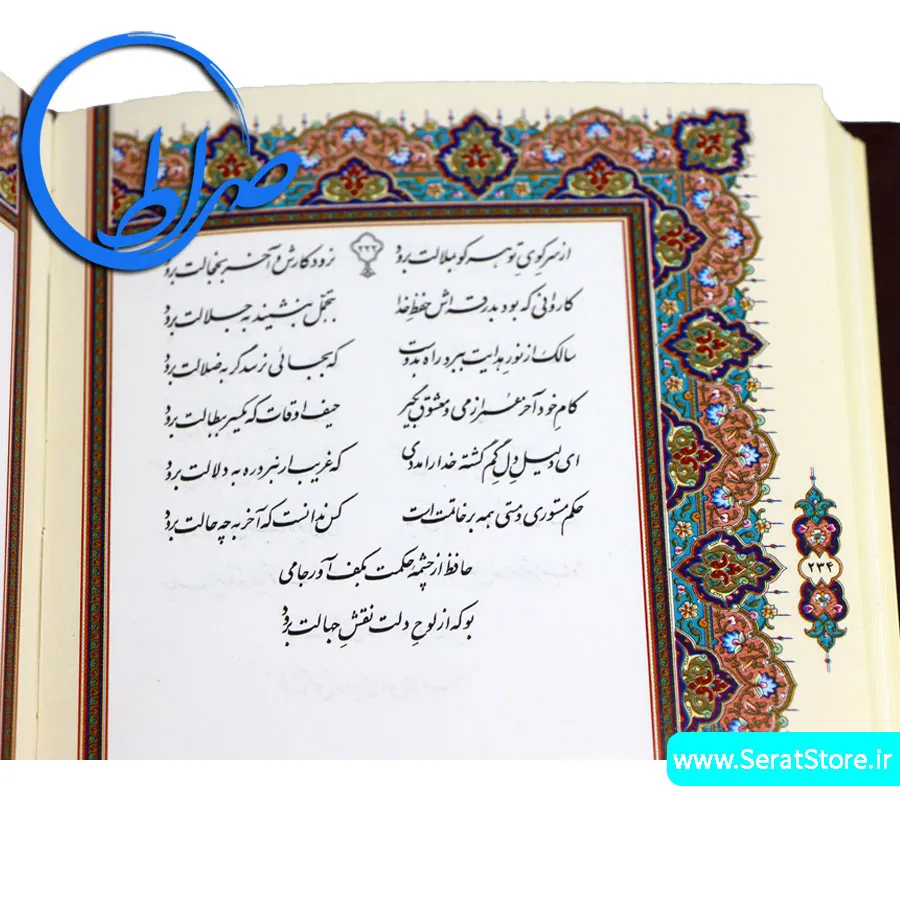 صراط
۲۲۲
از سر کوی تو هر کو بملالت برود نرود کارش و آخر بخجالت برود
کاروانی که بود بدرقه اش حفظ خدا بتجمل بنشیند به جلالت برود
سالک از نور هدایت ببرد راه بدوست که بجائی نرسد گر به ضلالت برود
کام خود آخر عمر از می و معشوق بگیر حیف اوقات که یکسر ببطالت برود
ای دلیل دل گم گشته خدا را مددی که غریب ار نبرد ره به دلالت برود
حکم مستوری و مستی همه بر خاتمت است کس ندانست که آخر به چه حالت برود
حافظ از چشمهٔ حکمت بکف آور جامی
بو که از لوح دلت نقش جهالت برود
۲۳۴
www.SeratStore.ir